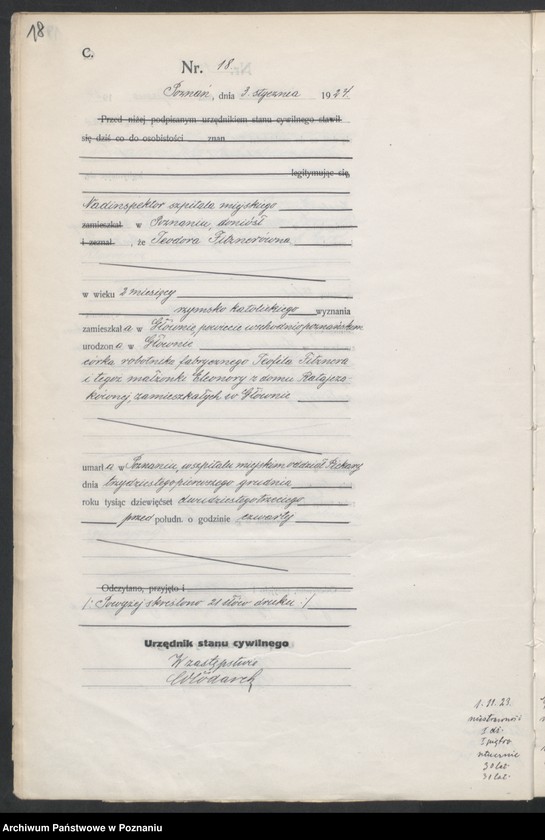 18
C.
Nr. 18.
Poznań, dnia 3. stycznia 1924
Przed niżej podpisanym urzędnikiem stanu cywilnego stawił
się dziś co do osobistości znan
legitymując się,
Nadinspektor szpitala miejskiego
zamieszkał w Poznaniu, doniósł
i zeznał, że Teodora Fitznerówna
w wieku 2 miesięcy
rzymsko katolickiego wyznania
zamieszkała w Głównie, powiecie wschodnio poznańskim
urodzona w Głównie
córka robotnika fabrycznego Teofila Fitznera
i tegoż małżonki Eleonory z domu Ratajcza-
kównej, zamieszkałych w Głównie
umarła w Poznaniu, w szpitalu miejskim oddział Piekary
dnia trzydziestego pierwszego grudnia
roku tysiąc dziewięćset dwudziestego trzeciego
przed połudn. o godzinie czwartej
Odczytano, przyjęto i
/: Powyżej skreślono 21 słów druku :/
Urzędnik stanu cywilnego
W zastępstwie
Włodarek
1. 11. 23.
1 dz.
30 lat
31 lat
Archiwum Państwowe w Poznaniu